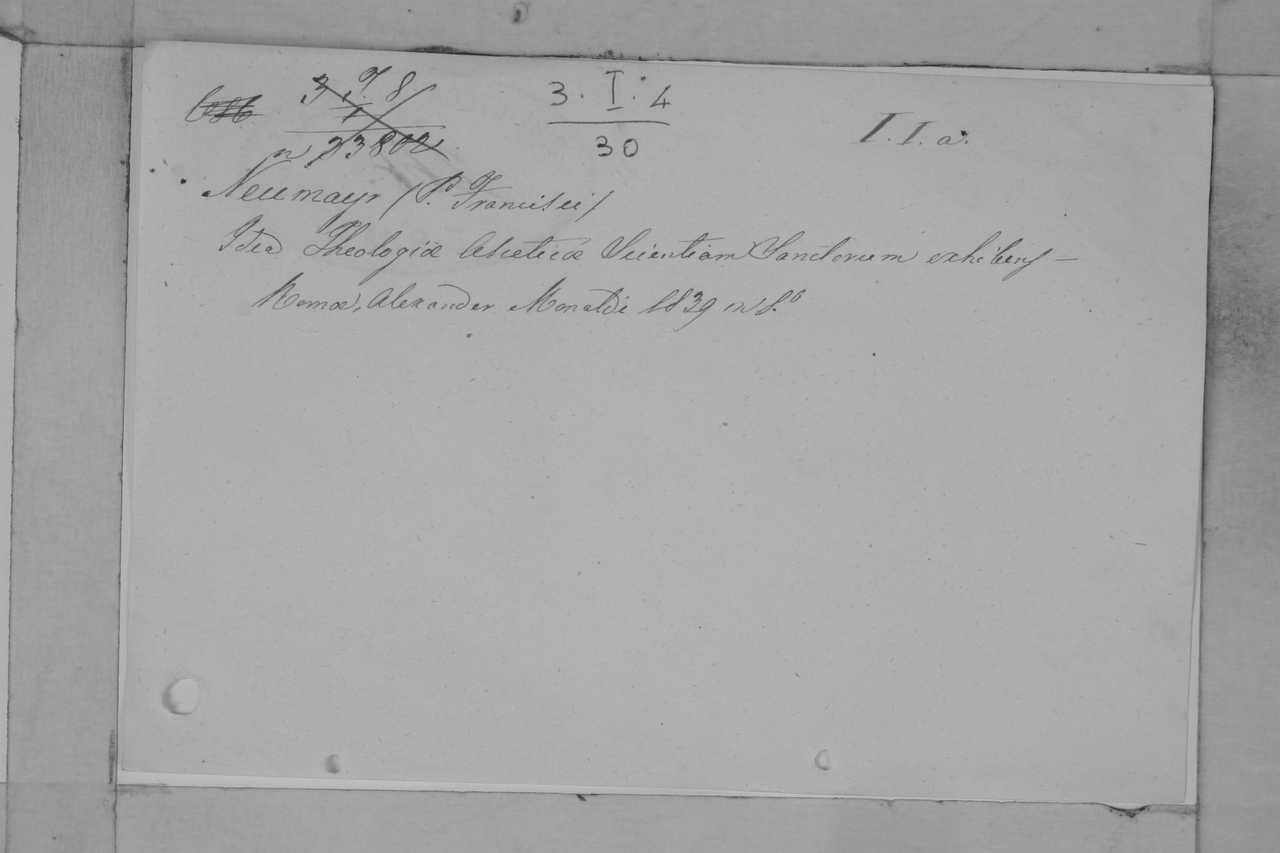 3. I. 4
30
I. I. a.
n 23802
Neumayr (P. Francisci)
Idea Theologiæ Asceticæ Scientiam Sanctorum exhibens —
Romæ, Alexander Monaldi 1839 in 8.º